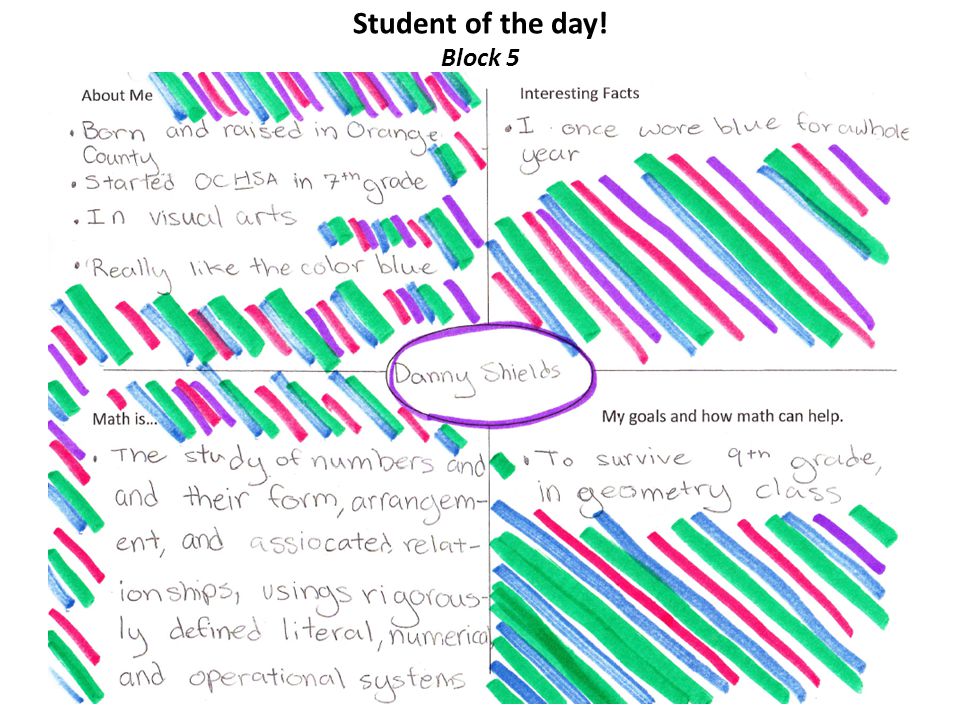 Student of the day!
Block 5
About Me
• Born and raised in Orange
County
• Started OCHSA in 7th grade
• In visual arts
• Really like the color blue
Interesting Facts
• I once wore blue for awhole
year
Danny Shields
Math is...
• The study of numbers and
and their form, arrangem-
ent, and assiocated relat-
ionships, usings rigorous-
ly defined literal, numerical,
and operational systems
My goals and how math can help.
• To survive 9th grade,
in geometry class